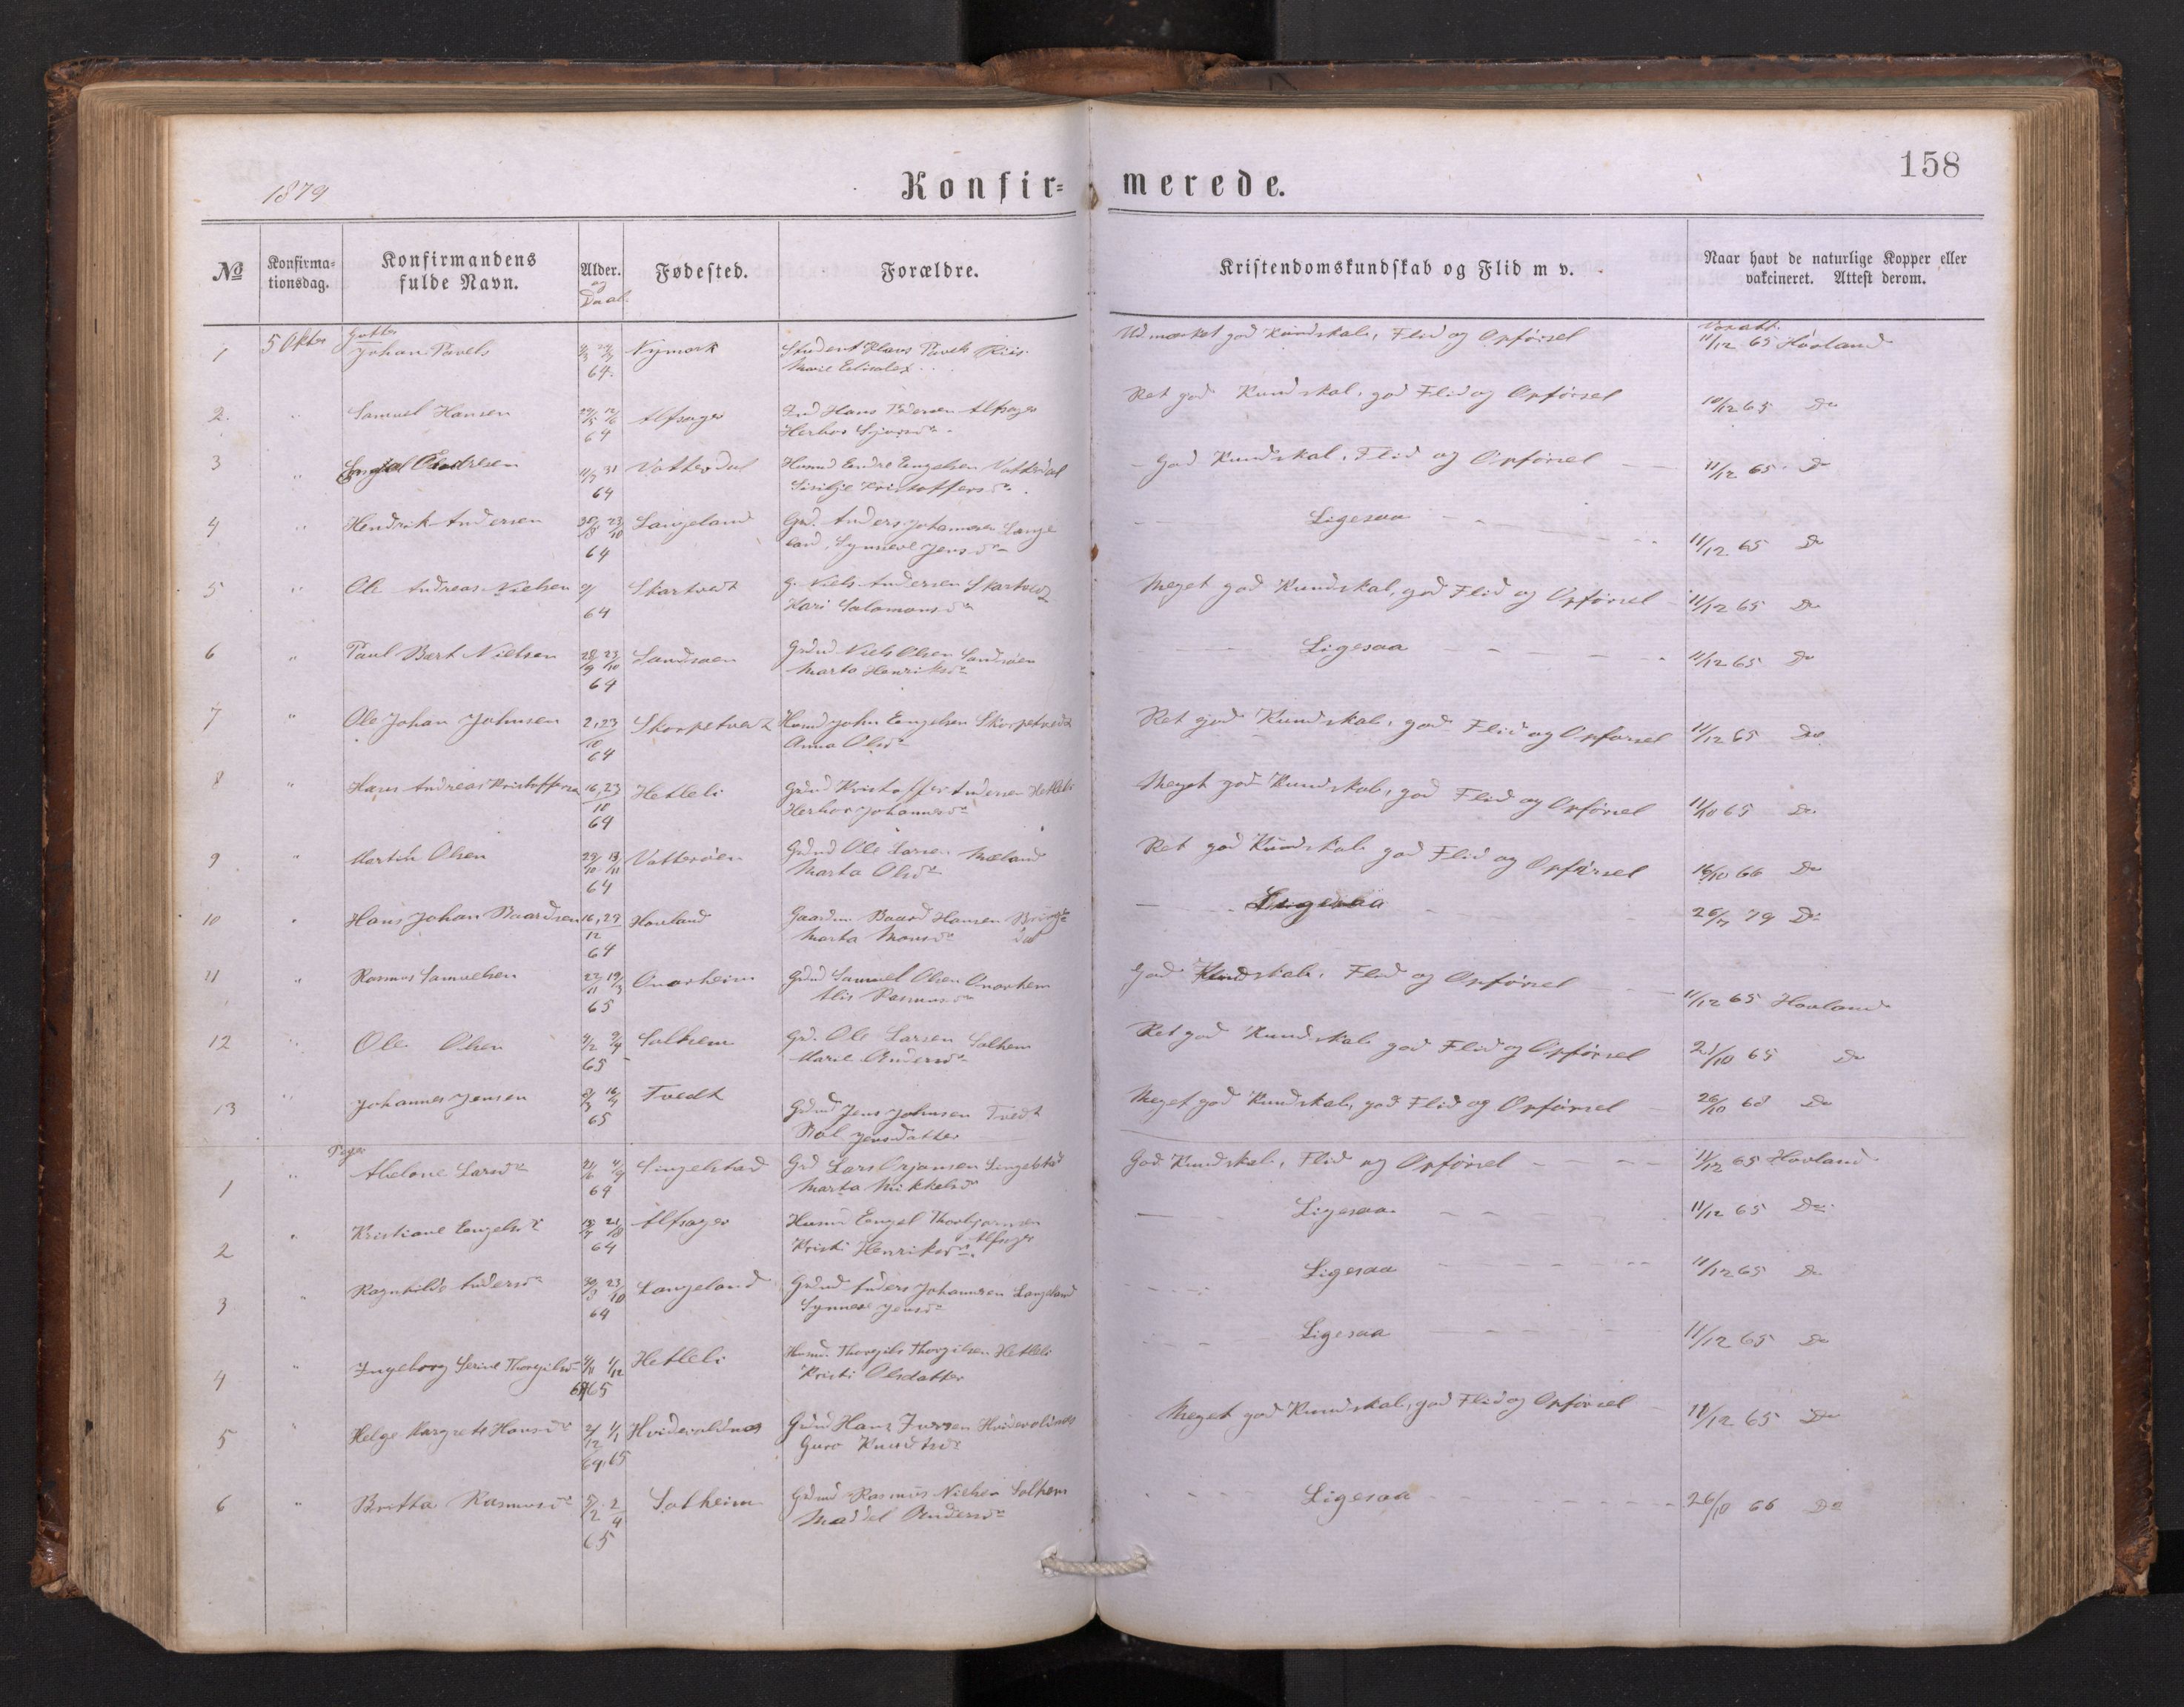 158
1879
Konfir= merede.
№ Konfirma= tionsdag. Konfirmandens fulde Navn. Alder. og Daab. Fødested. Forældre. Kristendomskundskab og Flid m v. Naar havt de naturlige Kopper eller vakcineret. Attest derom.
1 5 Oktbr Gutter Johan Pavels 64. Nymark Student Klaus Pavels Riis. Marie Udmærket god Kundskab, Flid og Opførsel 11/12 65 Hovland
2. " Samuel Hansen 64 Alfsager Hans Pedersen Alfsager Herbor God Ret god Kundskab, god Flid og Opførsel 10/12 65 Do
3 " Engel Endresen 64 Vatterdal Husmd Endre Engelsen Vatterdal Sisilje Kristoffersdr. God Kundskab, Flid og Opførsel 11/12 65 Do
4 " Hendrik Andersen 30/8 23/10 64 Langeland Grd. Anders Johannesen Lange land, Synneve Jensdr Ligesaa 11/12 65 Do
5 " Ole Andreas Nielsen 64 Skartvedt G. Niels Andersen Skartvedt Kari Salamonsdr Meget god Kundskab, god Flid og Opførsel 11/12 65 Do
6 " Paul Bært Nielsen 28/9 23/10 64 Sandsøen Grdmd Niels Olsen Sandsøen Marta Henriksdr Ligesaa 11/12 65 Do
7 " Ole Johan Johnsen 2, 23 10 64 Skorpetvedt Husmd John Engelsen Skorpetvedt Anna Olsdr Ret god Kundskab, god Flid og Opførsel 11/12 65 Do
8 " Hans Andreas Kristoffersen 16, 23 10 64 Hetleli Grdmd Kristoffer Andersen Hetleli Herbor Johannesdr Meget god Kundskab, god Flid og Opførsel 11/10 65 Do
9 " Martin Olsen 29/10 13/11 64 Vattersøen Grdmd Ole Larsen Mæland Marta Olsdr Ret god Kundskab god Flid og Opførsel 16/10 66 Do
10 " Hans Johan Baardsen 16, 29 12 64 Hovland Gaardm Baard Hansen Marta Monsdr Ligesaa 26/7 79 Do
11 " Rasmus Samuelsen 22/11 19/3 65 Onarheim Grdmd Samuel Olsen Onarhem Alis Rasmusdr God Kundskab, Flid og Opførsel 11/12 65 Hovland
12 " Ole Olsen 65 Solheim Grd. Ole Larsen Solhem Marie Andersdr Ret god Kundskab god Flid og Opførsel 21/10 65 Do
13 " Johannes Jensen 65 Tvedt Grdmd Jens Johnsen Tvedt Bol Jensdatter Meget god Kundskab, god Flid og Opførsel 26/10 68 Do
Piger
1 " Abelone Larsdr 64 Singelstad Grd Lars Ørjansen Singelstad Marta Mikkelsdr God Kundskab, Flid og Opførsel 11/12 65 Hovland
2 " Kristiane Engelsdr 21/8 64 Alfsager Husmd Engel Thorbjørnsen Alfsager Kristi Henriksdr. Ligesaa 11/12 65 Do
3 " Ragnhilde Andersdr 30/8 23/10 64 Langeland Grdmd Anders Johannesen Langeland Synneve Jensdr Ligesaa 11/12 65 Do
4 " Ingeborg Serine Thorgilsdr 64/65 Hetleli Husmd. Thorgils Thorgilsen Hetleli Kristi Olsdatter Ligesaa 11/12 65 Do
5 " Helge Margrete Hansdr 64, 65 Hvideroldnæs Grdmd Hans Iversen Hvideroldnæs Guro Knudsdr Meget god Kundskab, god Flid og Opførsel 11/12 65 Do
6 " Britha Rasmusdr 65 Solheim Grdmd Rasmus Nielsen Solhem Maddel Andersdr Ligesaa 26/10 66 Do